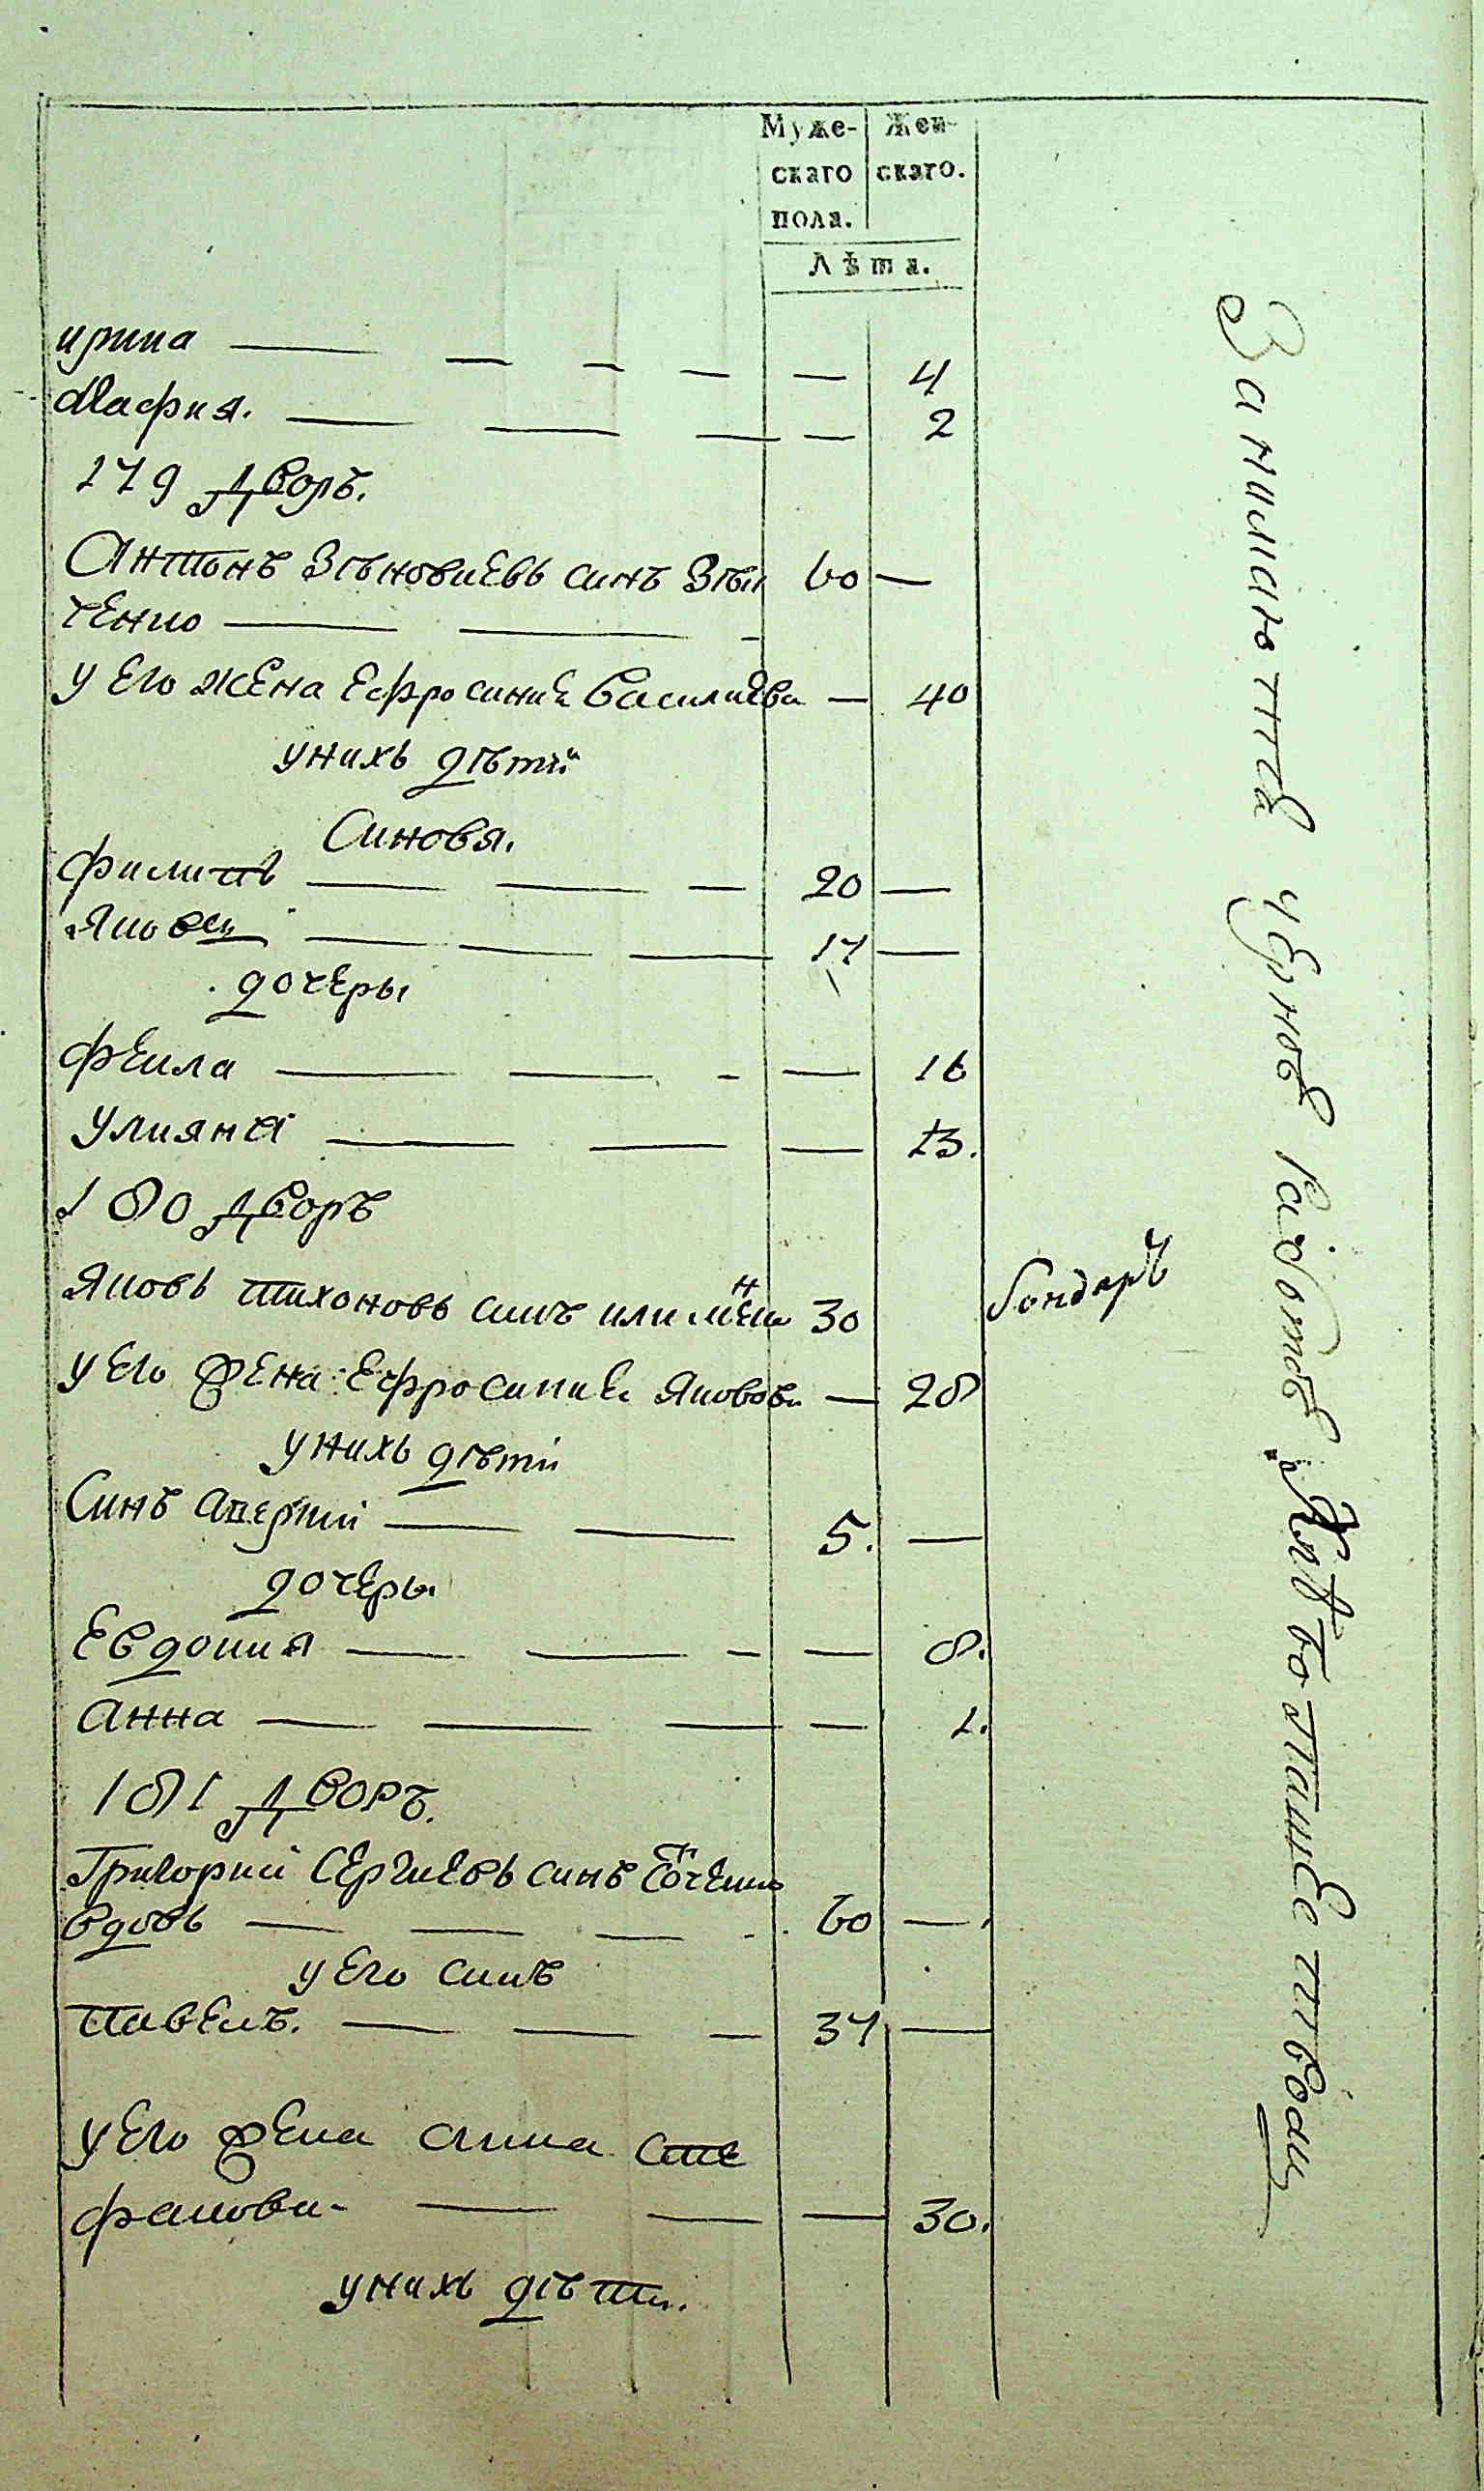 Муже-
скаго
пола.
Жен-
скаго.
Лѣта.
ирина — — — — — 4
Мафия. — — — — 2
179 Дворъ.
Антонъ Зѣновиевъ синъ Зѣн 60 —
ченко — — —
у его жена Ефросиния Василиева — 40
у нихъ дѣтй
Синовя.
Филипъ — — — 20 —
Яковъ — — — 17 —
дочеры
Фекла — — — — 16
Улияна — — — 13.
180 Дворъ
Яковъ Тихоновъ синъ 30
бондаръ
у его жена Ефросиния Яковова — 28
у нихъ дѣти
Синъ аверкий — — 5. —
дочеры
Евдокия — — — — 8.
Анна — — — — 1.
181 Дворъ.
Григорий Сергиевъ синъ
вдовъ — — — - 60 —
у его синъ
Павелъ. — — — 37 —
у его жена анна Сте
фанова - — — — 30.
у нихъ дѣти.
Занимаются черной работой